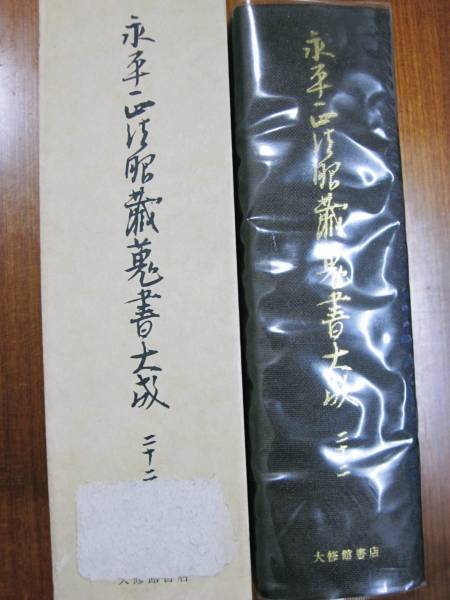 永平正法眼蔵蒐書大成
二十二
大修館書店
永平正法眼蔵蒐書大成
二十二
大修館書店